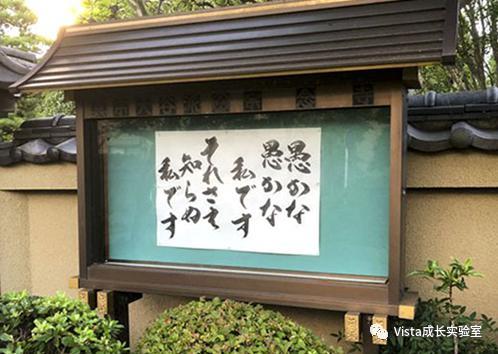 愚かな
愚かな
私です
それさえ
知らぬ
私です
Vista成长实验室